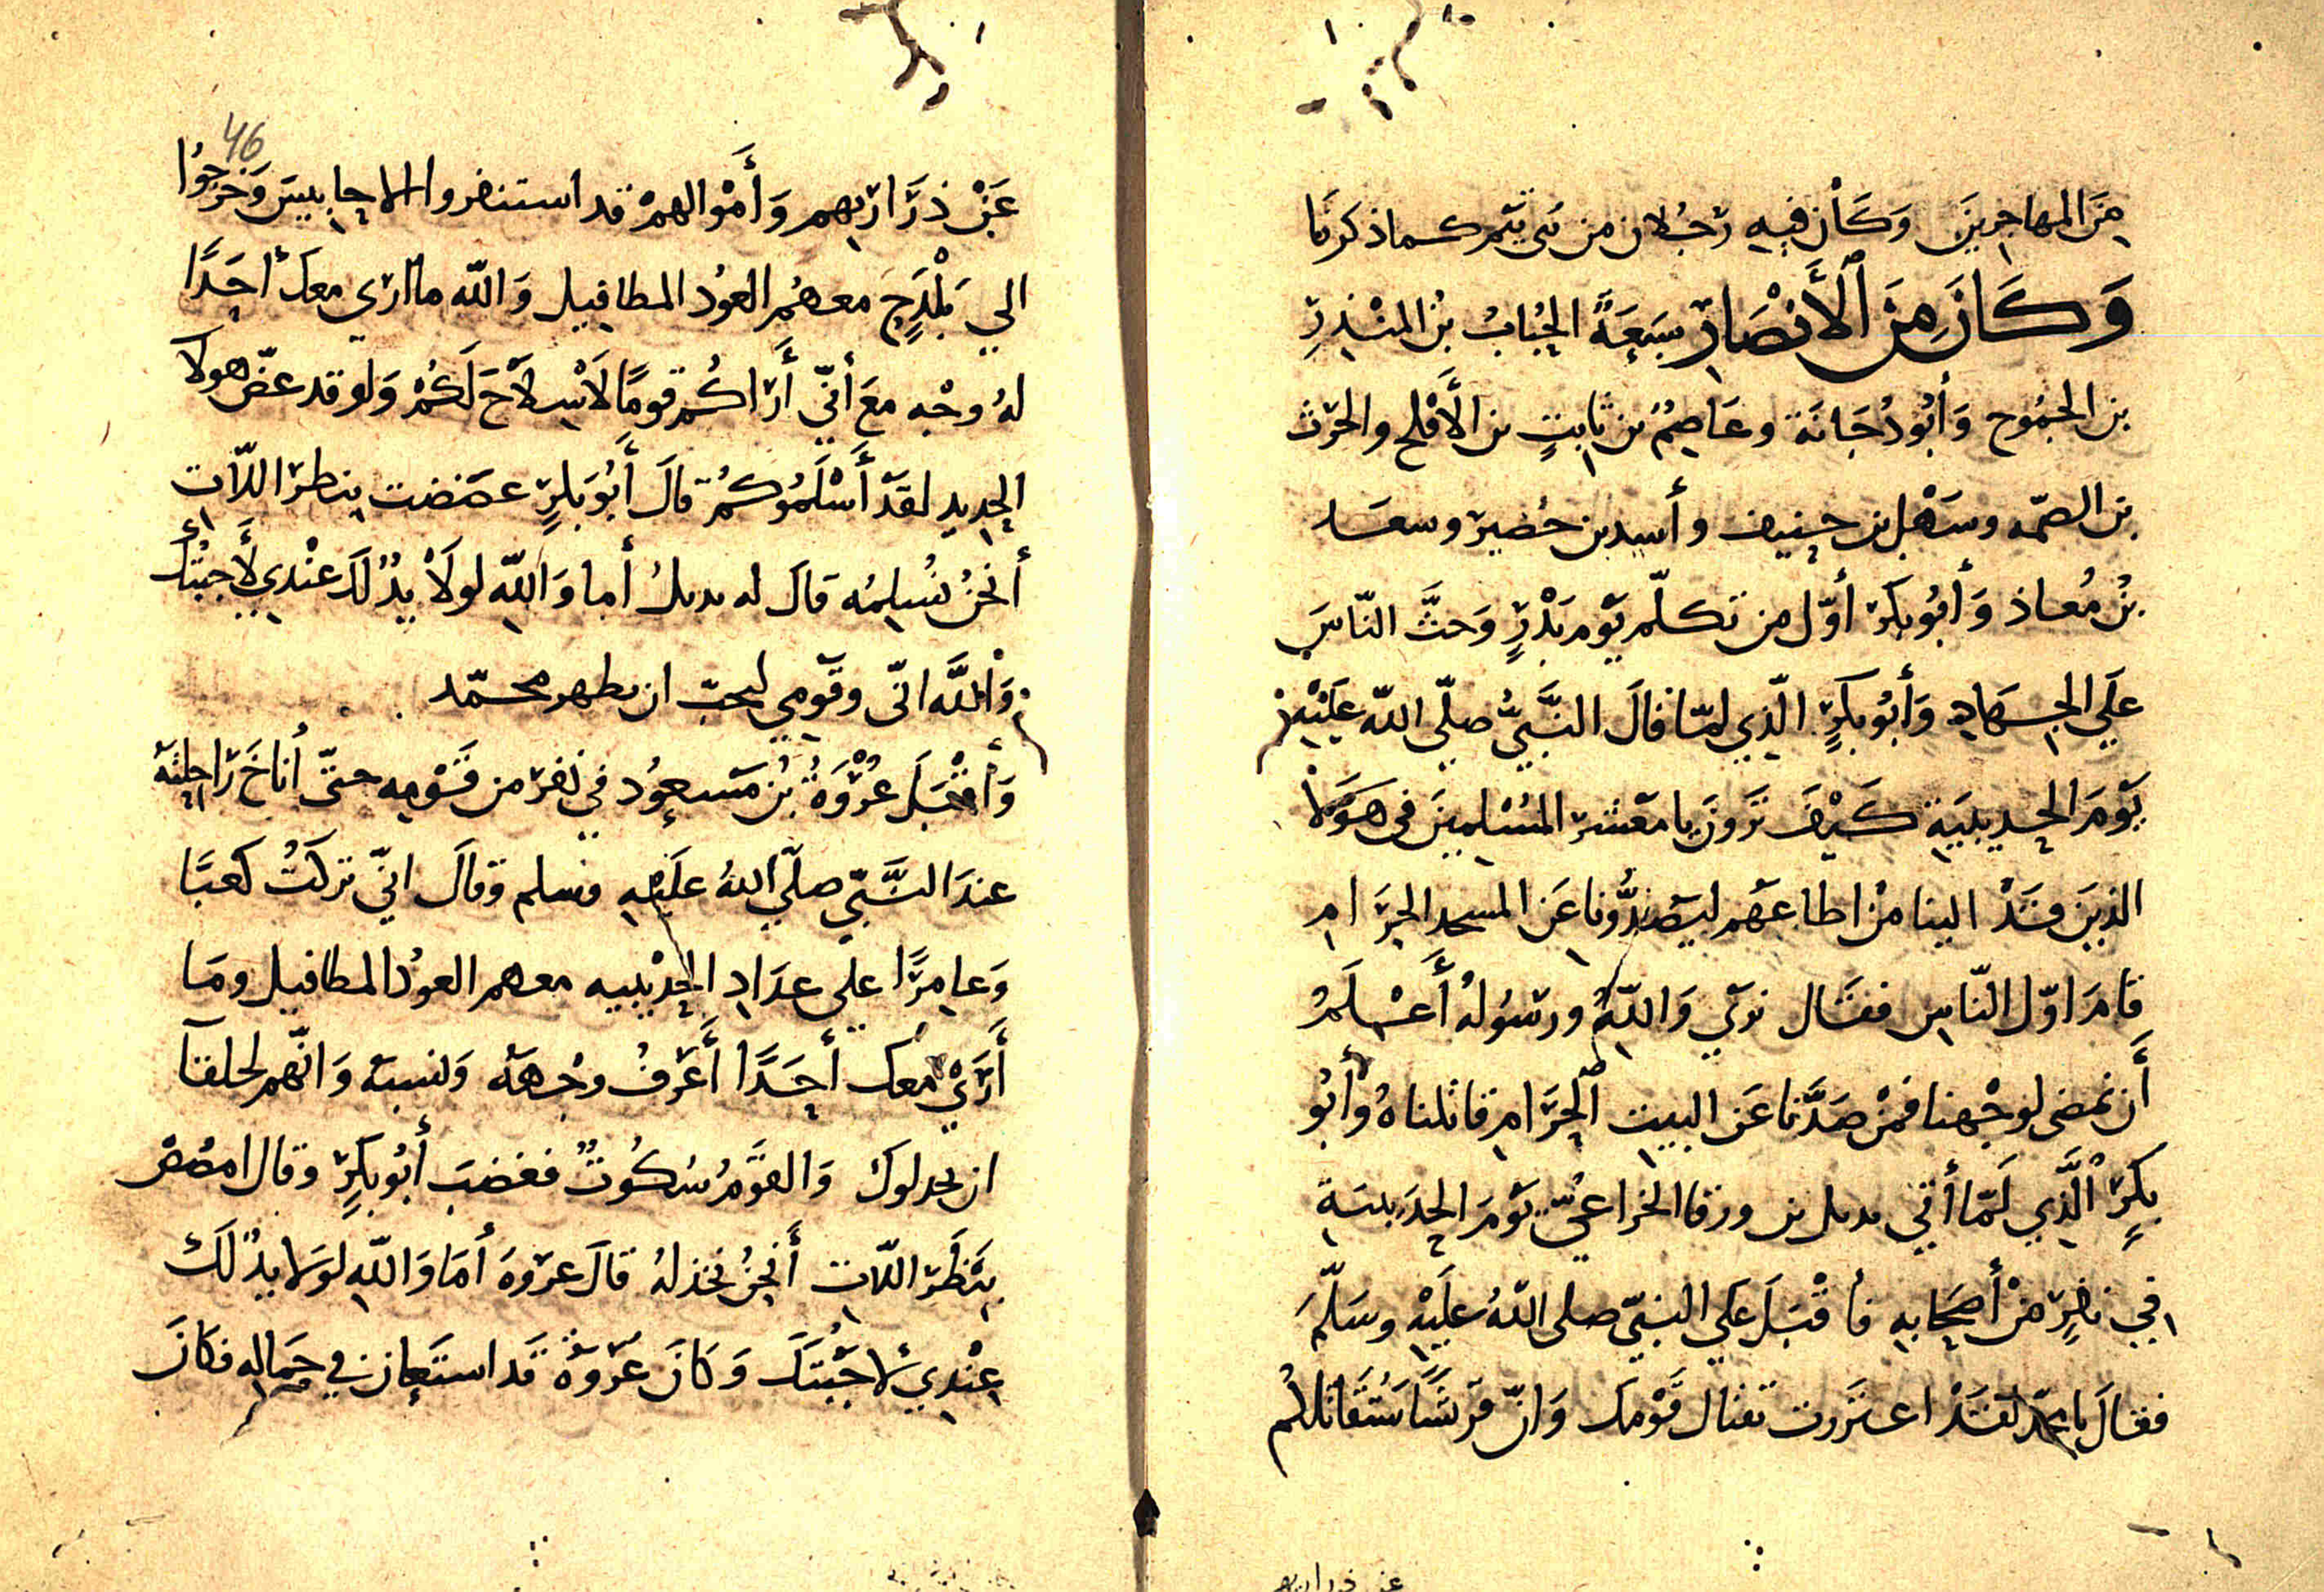 مِنَ المهاجرينَ وَكَانَ فيهِ رَجُلان من بَنى تَيْم كما ذكرنَا
وَكَانَ مِنَ ٱلْأَنْصَارِ سَبعَةً الحُبابُ بْنُ المنْذِرِ
بن الجمُوح وَأَبُو دُجَانَة وعَاصِمُ بن ثابتٍ بن الأَقْلح والحَرث
بن الصمّه وسَهْل بن حنيف وأسيد بن حُضير وسعَد
بْنُ مُعاذ وَأَبُو بَكرٍ أوّل من تكلّم يَوْم بَدْرٍ وَحثَّ النّاسَ
علَى الجهَادِ وَأَبُو بَكرٍ الّذِي لمّا قالَ النَّبيُّ صلّى اللّه علَيْهِ
يَوْمَ الحديبيَةِ كَيْفَ تَرَونَ يا مَعْشرَ المُسْلِمِينَ فى هَؤلَا
الذينَ قَدْ الينا مَنْ اطاعَهم ليَصُدُّونا عَن المسجد الحرَامِ
قامَ اوّل النّاسِ فقَال نرَى وَاللّهُ ورسُولهُ أَعْلَمُ
أَن نمضى لوجْهنا فمَنْ صَدَّنا عَن البيتِ ٱلحَرَامِ قاتلناهُ وَأَبُو
بكرٍ الَّذِي لَمّا أتى بديل بن ورقا الخزاعيّ يَوْمَ الحدَيبيَةِ
في نفرٍ مْن أصحَابهِ فأقْبَلَ على النبيّ صلى اللّهُ علَيْهِ وسَلّمَ
فقالَ يا محمّد لقَدْ اعتررت بقتال قَوْمك وَانّ قرَشَيًا سَتُقاتلكُم
عَن ذرَارِيهم وَأَمْوالهمْ قد استنفروا الاحابيسَ وَخرَجُوا
الى بَلْدَحٍ معهُم العوُذ المطافيل وَاللّه ما أرَى معك أحَدًا
لهُ وجْه مَعَ أنّي أَرَاكُم قومًا لَا سِلَاحَ لَكُمْ وَلو قد عضّ هولا
الحديد لقَدْ أَسْلَمُوكُم قالَ أَبُو بَكرٍ عضضت بنظر اللّات
أَنحْنُ نُسْلِمُه قال له بديلُ أما وَاللّهِ لولَا يدٌ لَكَ عنْدِي لَأَجبْتُكَ
وَاللّه انّى وقوْمى ليحبّ ان يظهر محمّد
وَأَقْبَلَ عُرْوَةُ بْنُ مَسعوُد في نفر من قَوْمِه حتّى أناخَ رَاحلتَهُ
عندَ النَّبيّ صلّى اللّهُ علَيْهِ وسلم وقالَ انّي تركتُ كعبًا
وَعامِرًا على عدَادِ الحدَيْبيه معهم العوُذ المطافيل ومَا
أَرَىْ معك أحَدًا أَعْرفُ وجْهَهُ وَنسبهُ وَانّهم لحلقآ
ان يخدلوك وَالقوْمُ سُكُوتٌ فغضبَ أبُو بكرٍ وقال امصُصْ
ببَظْر اللّاتِ أَنحْنُ نخذلهُ قالَ عروَة أمَا وَاللّهِ لوْلا يدٌ لَكَ
عِنْدِي لأجَبْتكَ وَكانَ عُرْوَةُ قَد استعَان فى حمَالهِ فكانَ
46